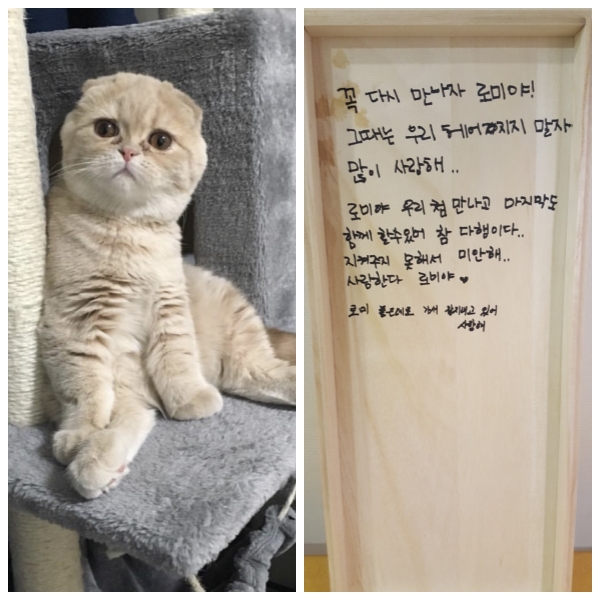 꼭 다시 만나자 로미야!
그때는 우리 헤어지지 말자
많이 사랑해..
로미야 우리 첨 만나고 마지막도
함께 할수있어 참 다행이다..
지켜주지 못해서 미안해..
사랑한다 로미야 ♥
로미 좋은데로 가서 잘지내고 있어
사랑해